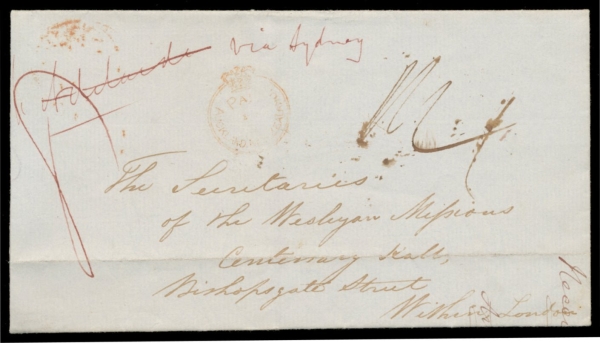 Adelaide via Sydney
The Secretaries
of the Wesleyan Missions
Centenary Hall,
Bishopsgate Street
Within London